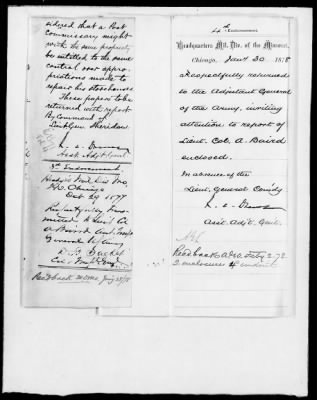 sidered that a Post
Commissary might
with the same propriety
be entitled to the same
control over appro-
priations made to
repair his storehouse.
These papers to be
returned with report.
By Command of
Lieut. Gen. Sheridan
Asst. Adjt. Genl.
3rd Endorsement
Hdqrs Mil. Div. Mo.
Chicago
Oct 29 1877
Respectfully trans-
mitted to Lieut. Col.
A. Baird Asst. Insp.
General U.S. Army
D. B. Sacket
Col. & Insp. Genl.
Recd back M.D. Mo. Jany 28/78
4th Endorsement.
Headquarters Mil. Div. of the Missouri,
Chicago, Jany 30 1878
Respectfully returned
to the Adjutant General
of the Army, inviting
attention to report of
Lieut. Col. A. Baird
enclosed.
In absence of the
Lieut. General Comdg
Asst. Adjt. Genl.
Recd back A.G.O. Feby 2. 78
2 enclosures